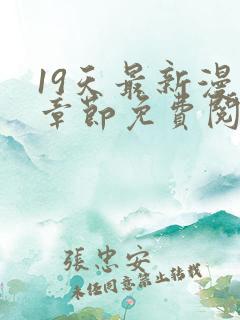 19天最新漫
章節免費閱
張忠安
未经同意禁止转载